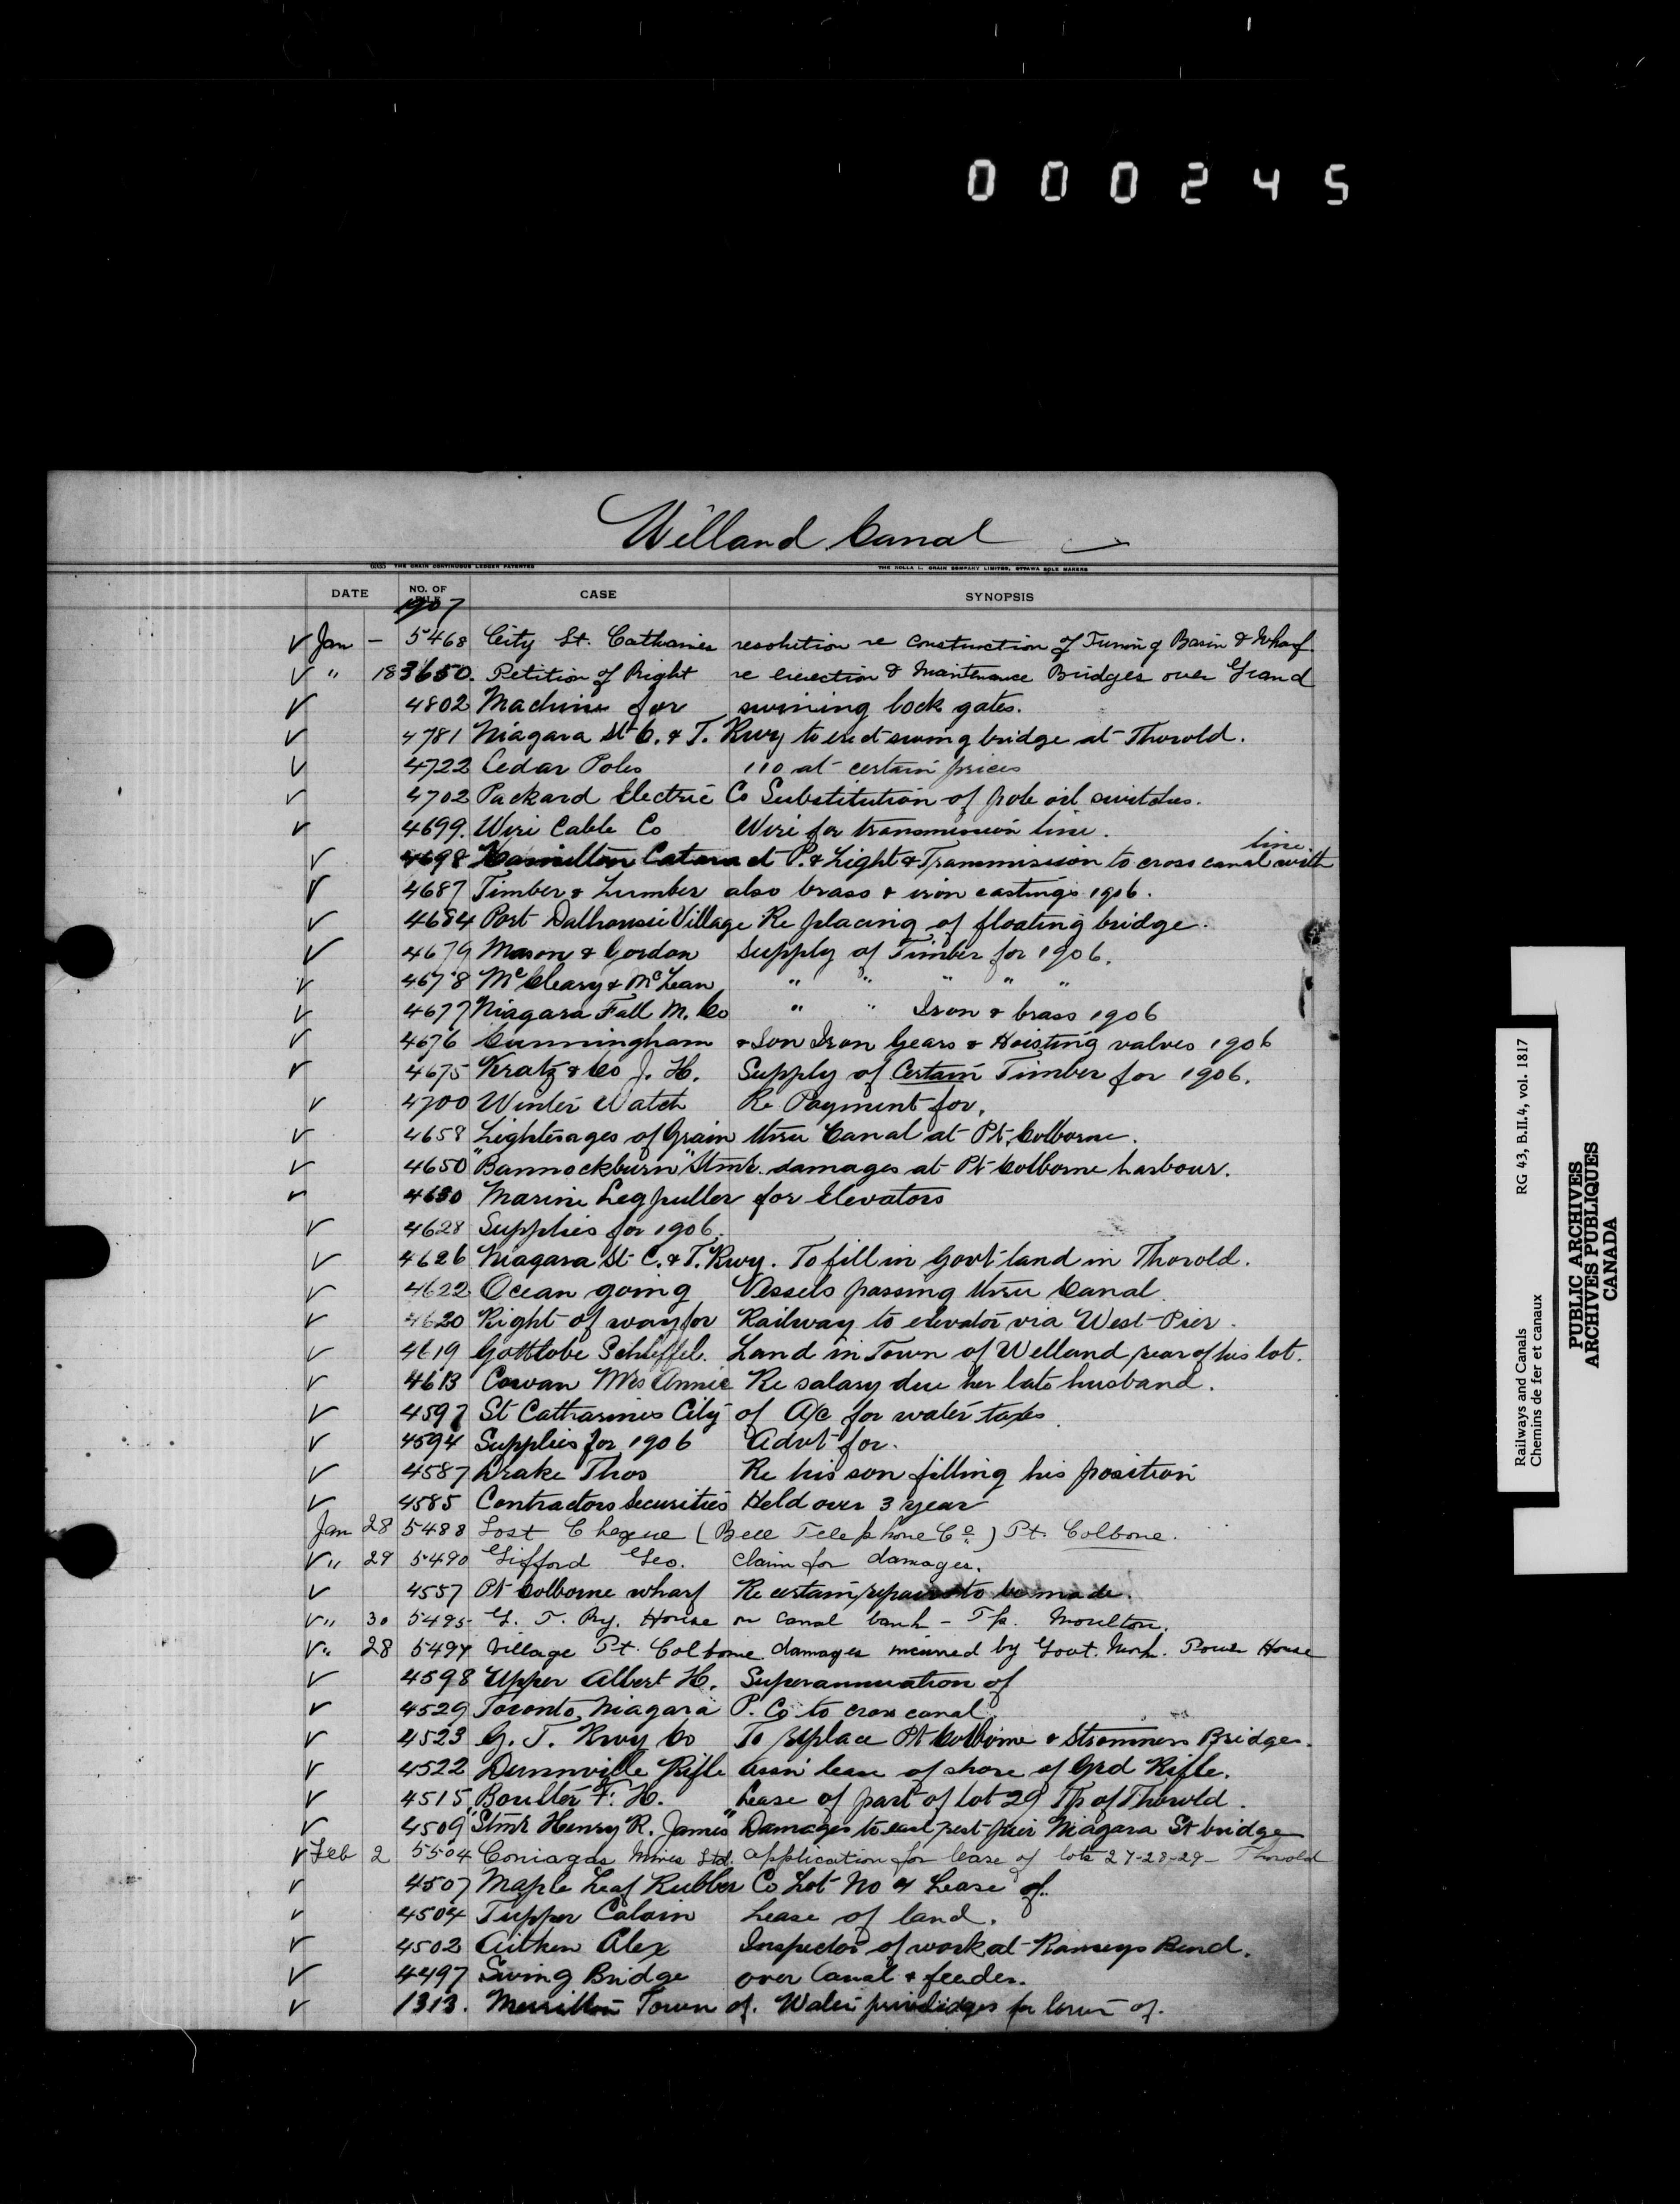 000245
Welland Canal
6055 THE CRAIN CONTINUOUS LEDGER PATENTED THE ROLLA L. CRAIN COMPANY LIMITED, OTTAWA SOLE MAKERS
DATE NO. OF FILE CASE SYNOPSIS
1907
✓ Jan – 5468 City St. Catharines resolution re construction of Turning Basin & Wharf
✓ " 18 3650. Petition of Right re erection & Maintenance Bridges over Grand
✓ 4802 Machine for swining lock gates.
✓ 4781 Niagara St C. & T. Rwy to erect swing bridge at Thorold.
✓ 4722 Cedar Poles 110 at certain prices
✓ 4702 Packard Electric Co Substitution of pole oil switches.
✓ 4699. Wire Cable Co Wire for transmission line.
✓ 4698 Hamilton Cataract P. & Light & Transmission to cross canal with line.
✓ 4687 Timber & Lumber also brass & iron castings 1906.
✓ 4684 Port Dalhousie Village Re placing of floating bridge.
✓ 4679 Mason & Gordon Supply of Timber for 1906.
✓ 4678 McCleary & McLean " " " " "
✓ 4677 Niagara Fall M. Co " " Iron & brass 1906
✓ 4676 Cunningham & Son Iron Gears & Hoisting valves 1906
✓ 4675 Kratz & Co J. H. Supply of Certain Timber for 1906.
✓ 4700 Winter Watch Re Payment for.
✓ 4658 Lighterages of Grain thru Canal at Pt. Colborne.
✓ 4650 "Bannockburn" Stmr. damages at Pt Colborne harbour.
✓ 4630 Marine Leg puller for Elevators
✓ 4628 Supplies for 1906
✓ 4626 Niagara St C. & T. Rwy. To fill in Govt land in Thorold.
✓ 4622 Ocean going Vessels passing thru Canal.
✓ 4620 Right of way for Railway to elevator via West Pier.
✓ 4619 Gottlobe Schieffel. Land in Town of Welland rear of his lot.
✓ 4613 Cowan Mrs Annie Re salary due her late husband.
✓ 4597 St Catharines City of A/c for water taxes.
✓ 4594 Supplies for 1906 Advt for.
✓ 4587 Drake Thos Re his son filling his position
✓ 4585 Contractors Securities Held over 3 year
Jan 28 5488 Lost Cheque (Bell Telephone Co.) Pt. Colbone.
✓ " 29 5490 Gifford Geo. claim for damages.
✓ 4557 Pt Colborne wharf Re certain repairs to be made.
✓ " 30 5495 G. T. Ry. House on canal bank – Tp. Moulton.
✓ " 28 5497 Village Pt. Colborne damages incurred by Govt. Power House
✓ 4598 Upper Albert H. Superannuation of
✓ 4529 Toronto, Niagara P. Co to cross canal.
✓ 4523 G. T. Rwy Co To replace Pt Colborne & Stromness Bridges.
✓ 4522 Dunnville Rifle assn lease of shore of Grd Rifle.
✓ 4515 Boulter F. H. Lease of part of lot 29 Tp of Thorold.
✓ 4509 "Stmr Henry R. James" Damages to east rest pier Niagara St bridge
✓ Feb 2 5504 Coniagas Mines Ltd. application for lease of lots 27-28-29- Thorold
✓ 4507 Maple Leaf Rubber Co Lot No 4 Lease of.
✓ 4504 Tupper Calvin Lease of land.
✓ 4502 Aitken Alex Inspector of work at Ramseys Bend.
✓ 4497 Swing Bridge over Canal & feeder.
✓ 1313. Merritton Town of. Water priviledges for of.
Railways and Canals RG 43, B.II.4, vol. 1817
Chemins de fer et canaux
PUBLIC ARCHIVES
ARCHIVES PUBLIQUES
CANADA